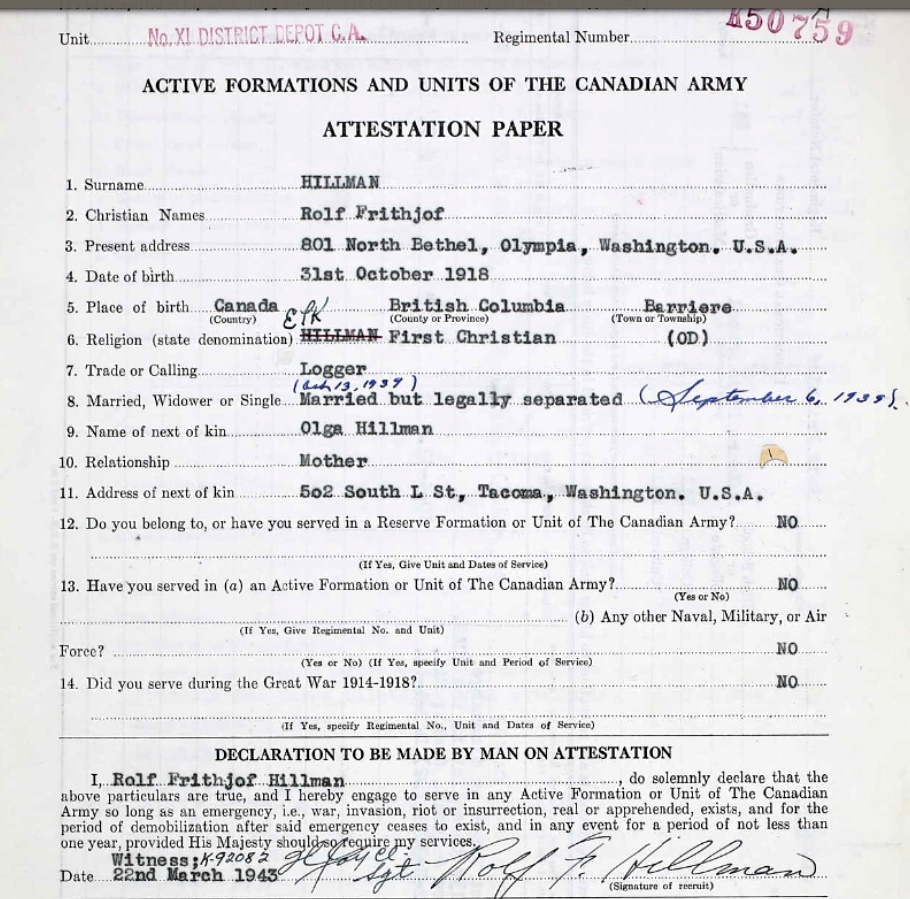 K50759
Unit No. XI DISTRICT DEPOT C.A. Regimental Number
ACTIVE FORMATIONS AND UNITS OF THE CANADIAN ARMY
ATTESTATION PAPER
1. Surname HILLMAN
2. Christian Names Rolf Frithjof
3. Present address 801 North Bethel, Olympia, Washington. U.S.A.
4. Date of birth 31st October 1918
5. Place of birth Canada British Columbia Barriere
(Country) (County or Province) (Town or Township)
6. Religion (state denomination) HILLMAN First Christian (OD)
7. Trade or Calling Logger
8. Married, Widower or Single Married but legally separated (September 6, 1939).
9. Name of next of kin Olga Hillman
10. Relationship Mother
11. Address of next of kin 5o2 South L St, Tacoma, Washington. U.S.A.
12. Do you belong to, or have you served in a Reserve Formation or Unit of The Canadian Army? NO
(If Yes, Give Unit and Dates of Service)
13. Have you served in (a) an Active Formation or Unit of The Canadian Army? NO
(Yes or No)
(b) Any other Naval, Military, or Air
(If Yes, Give Regimental No. and Unit)
Force? NO
(Yes or No) (If Yes, specify Unit and Period of Service)
14. Did you serve during the Great War 1914-1918? NO
(If Yes, specify Regimental No., Unit and Dates of Service)
DECLARATION TO BE MADE BY MAN ON ATTESTATION
I, Rolf Frithjof Hillman, do solemnly declare that the
above particulars are true, and I hereby engage to serve in any Active Formation or Unit of The Canadian
Army so long as an emergency, i.e., war, invasion, riot or insurrection, real or apprehended, exists, and for the
period of demobilization after said emergency ceases to exist, and in any event for a period of not less than
one year, provided His Majesty should so require my services.
Witness; K-92082
Date 22nd March 1943 Sgt Rolf F. Hillman
(Signature of recruit)